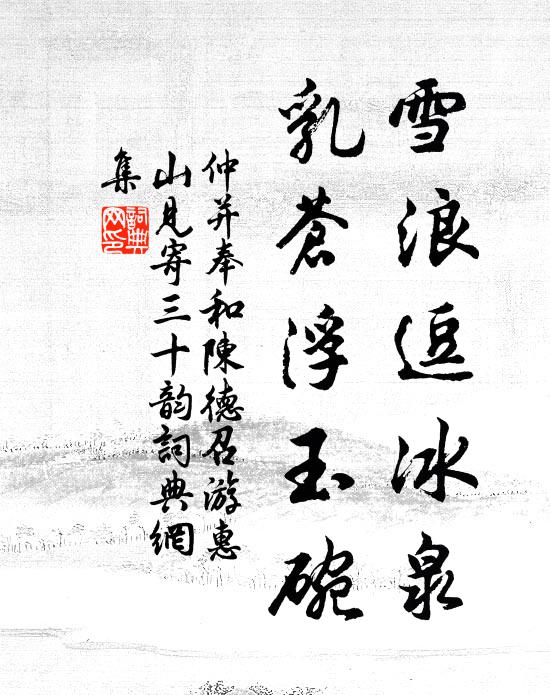 雪浪逗冰泉
乳蒼浮玉碗
仲并奉和陳德召游惠
山見寄三十韵詞典網
集
詞典
网印